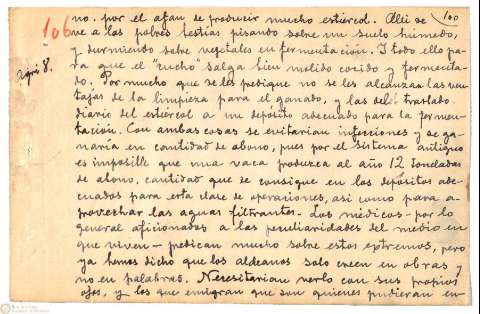 106
100
no. por el afán de producir mucho estiércol. Allí se
ve a las pobres bestias pisando sobre un suelo húmedo,
y durmiendo sobre vegetales en fermentación. Y todo ello pa
ra que el "cucho" salga bien molido cocido y fermenta-
do. Por mucho que se les predique no se les alcanzan las ven
tajas de la limpieza para el ganado, y las del traslado
diario del estiércol a un depósito adecuado para la fermen-
tación. Con ambas cosas se evitarían infecciones y se ga-
naría en cantidad de abono, pues por el sistema antiguo
es imposible que una vaca produzca al año 12 toneladas
de abono, cantidad que se consigue en los depósitos ade-
cuados para esta clase de operaciones, así como para a-
provechar las aguas filtrantes. Los médicos - por lo
general aficionados a las peculiaridades del medio en
que viven - predican mucho sobre estos extremos, pero
ya hemos dicho que los aldeanos solo creen en obras y
no en palabras. Necesitarían verlo con sus propios
ojos, y los que emigran que son quienes pudieran en-